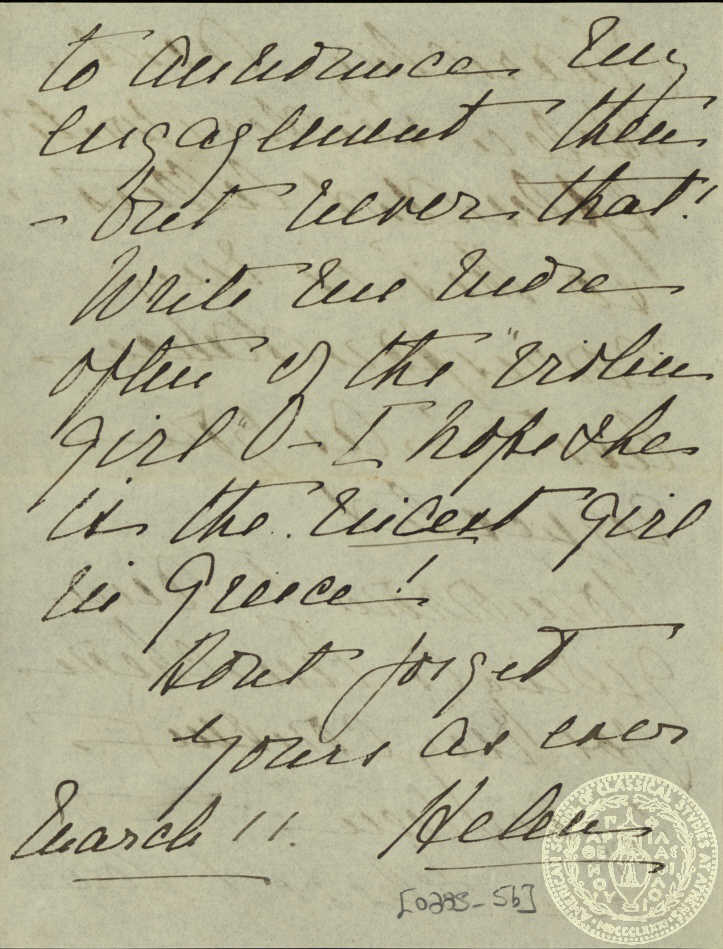 to announce my
engagement then
- but never that!
Write me more
often of the "violin
girl" O - I hope she
is the nicest girl
in Greece!
Dont forget
Yours as ever
March 11. Helen
[0225-5b]
AMERICAN SCHOOL OF CLASSICAL STUDIES AT ATHENS
MDCCCLXXXI